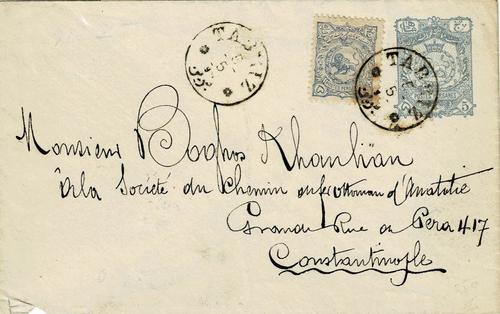 TABRIZ
5
33
TABRIZ
5
33
5
Monsieur Boghos Khanlian
à la Société du Chemin de fer Ottoman d'Anatolie
Grande Rue de Pera 417
Constantinople